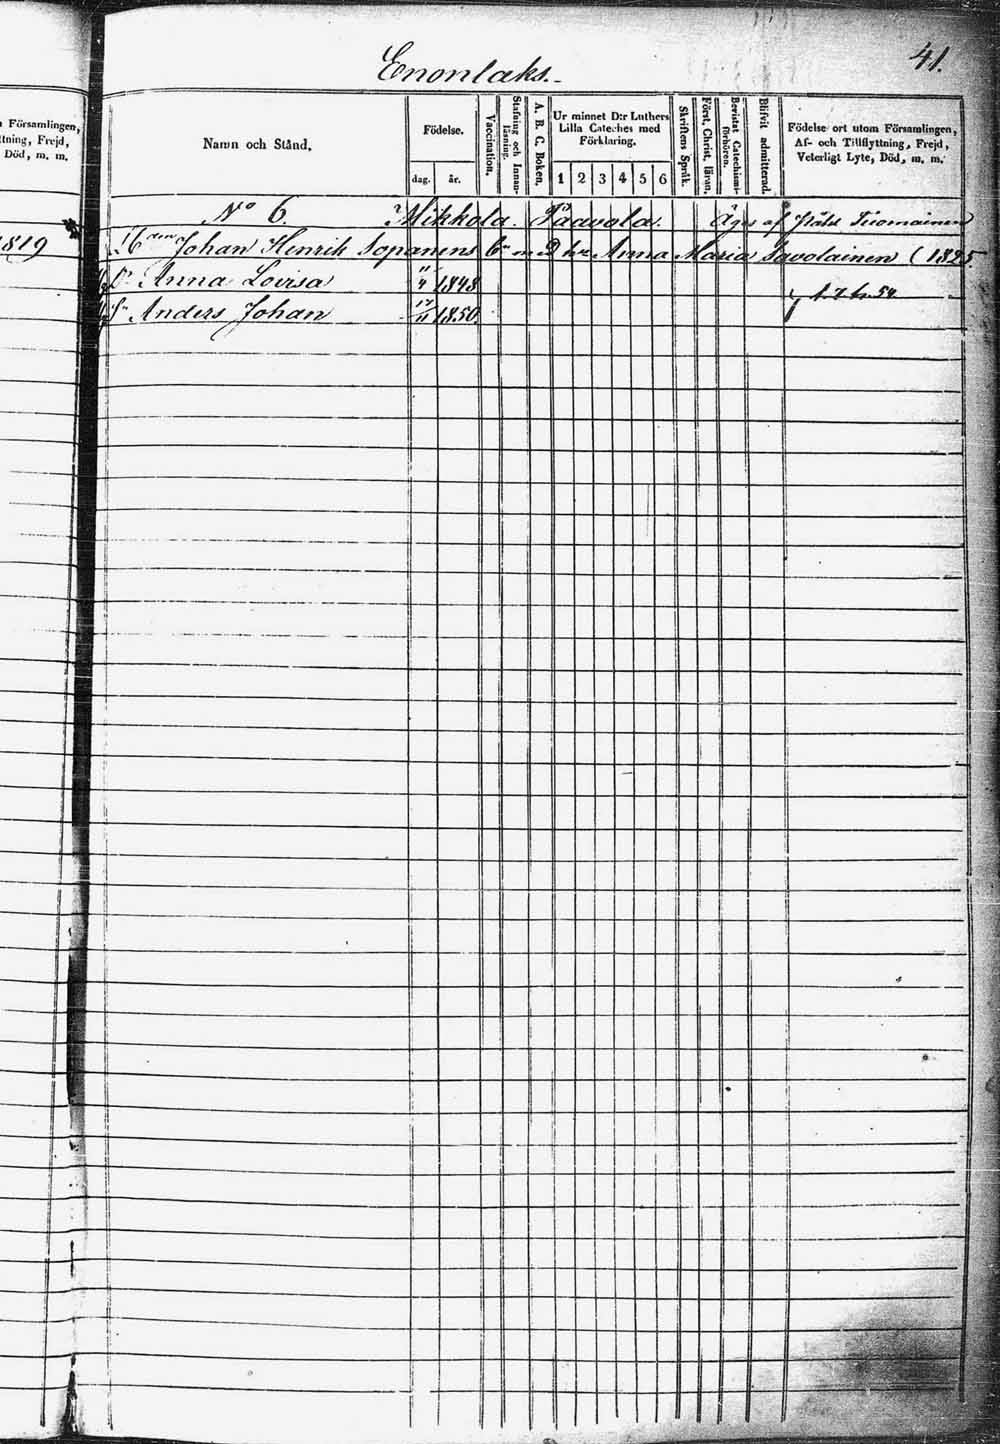 41.
Enonlaks.
Församlingen,
ttning, Frejd,
Död, m. m.
Namn och Stånd.
Födelse.
dag. år.
Vaccination.
Stafning och Innan-
läsning.
A. B. C. Boken.
Ur minnet D:r Luthers
Lilla Cateches med
Förklaring.
1 2 3 4 5 6
Skriftens Språk.
Först. Christ. läran.
Bevistat Catechismi-
förhören.
Blifvit admitterad.
Födelse ort utom Församlingen,
Af- och Tillflyttning, Frejd,
Veterligt Lyte, Död, m. m.
No 6. Mikkola Paavola. Äges af
1819
Johan Henrik Sopanens med Anna Maria Savolainen (1825.
Dr Anna Lovisa 1848
Sn Anders Johan 1850